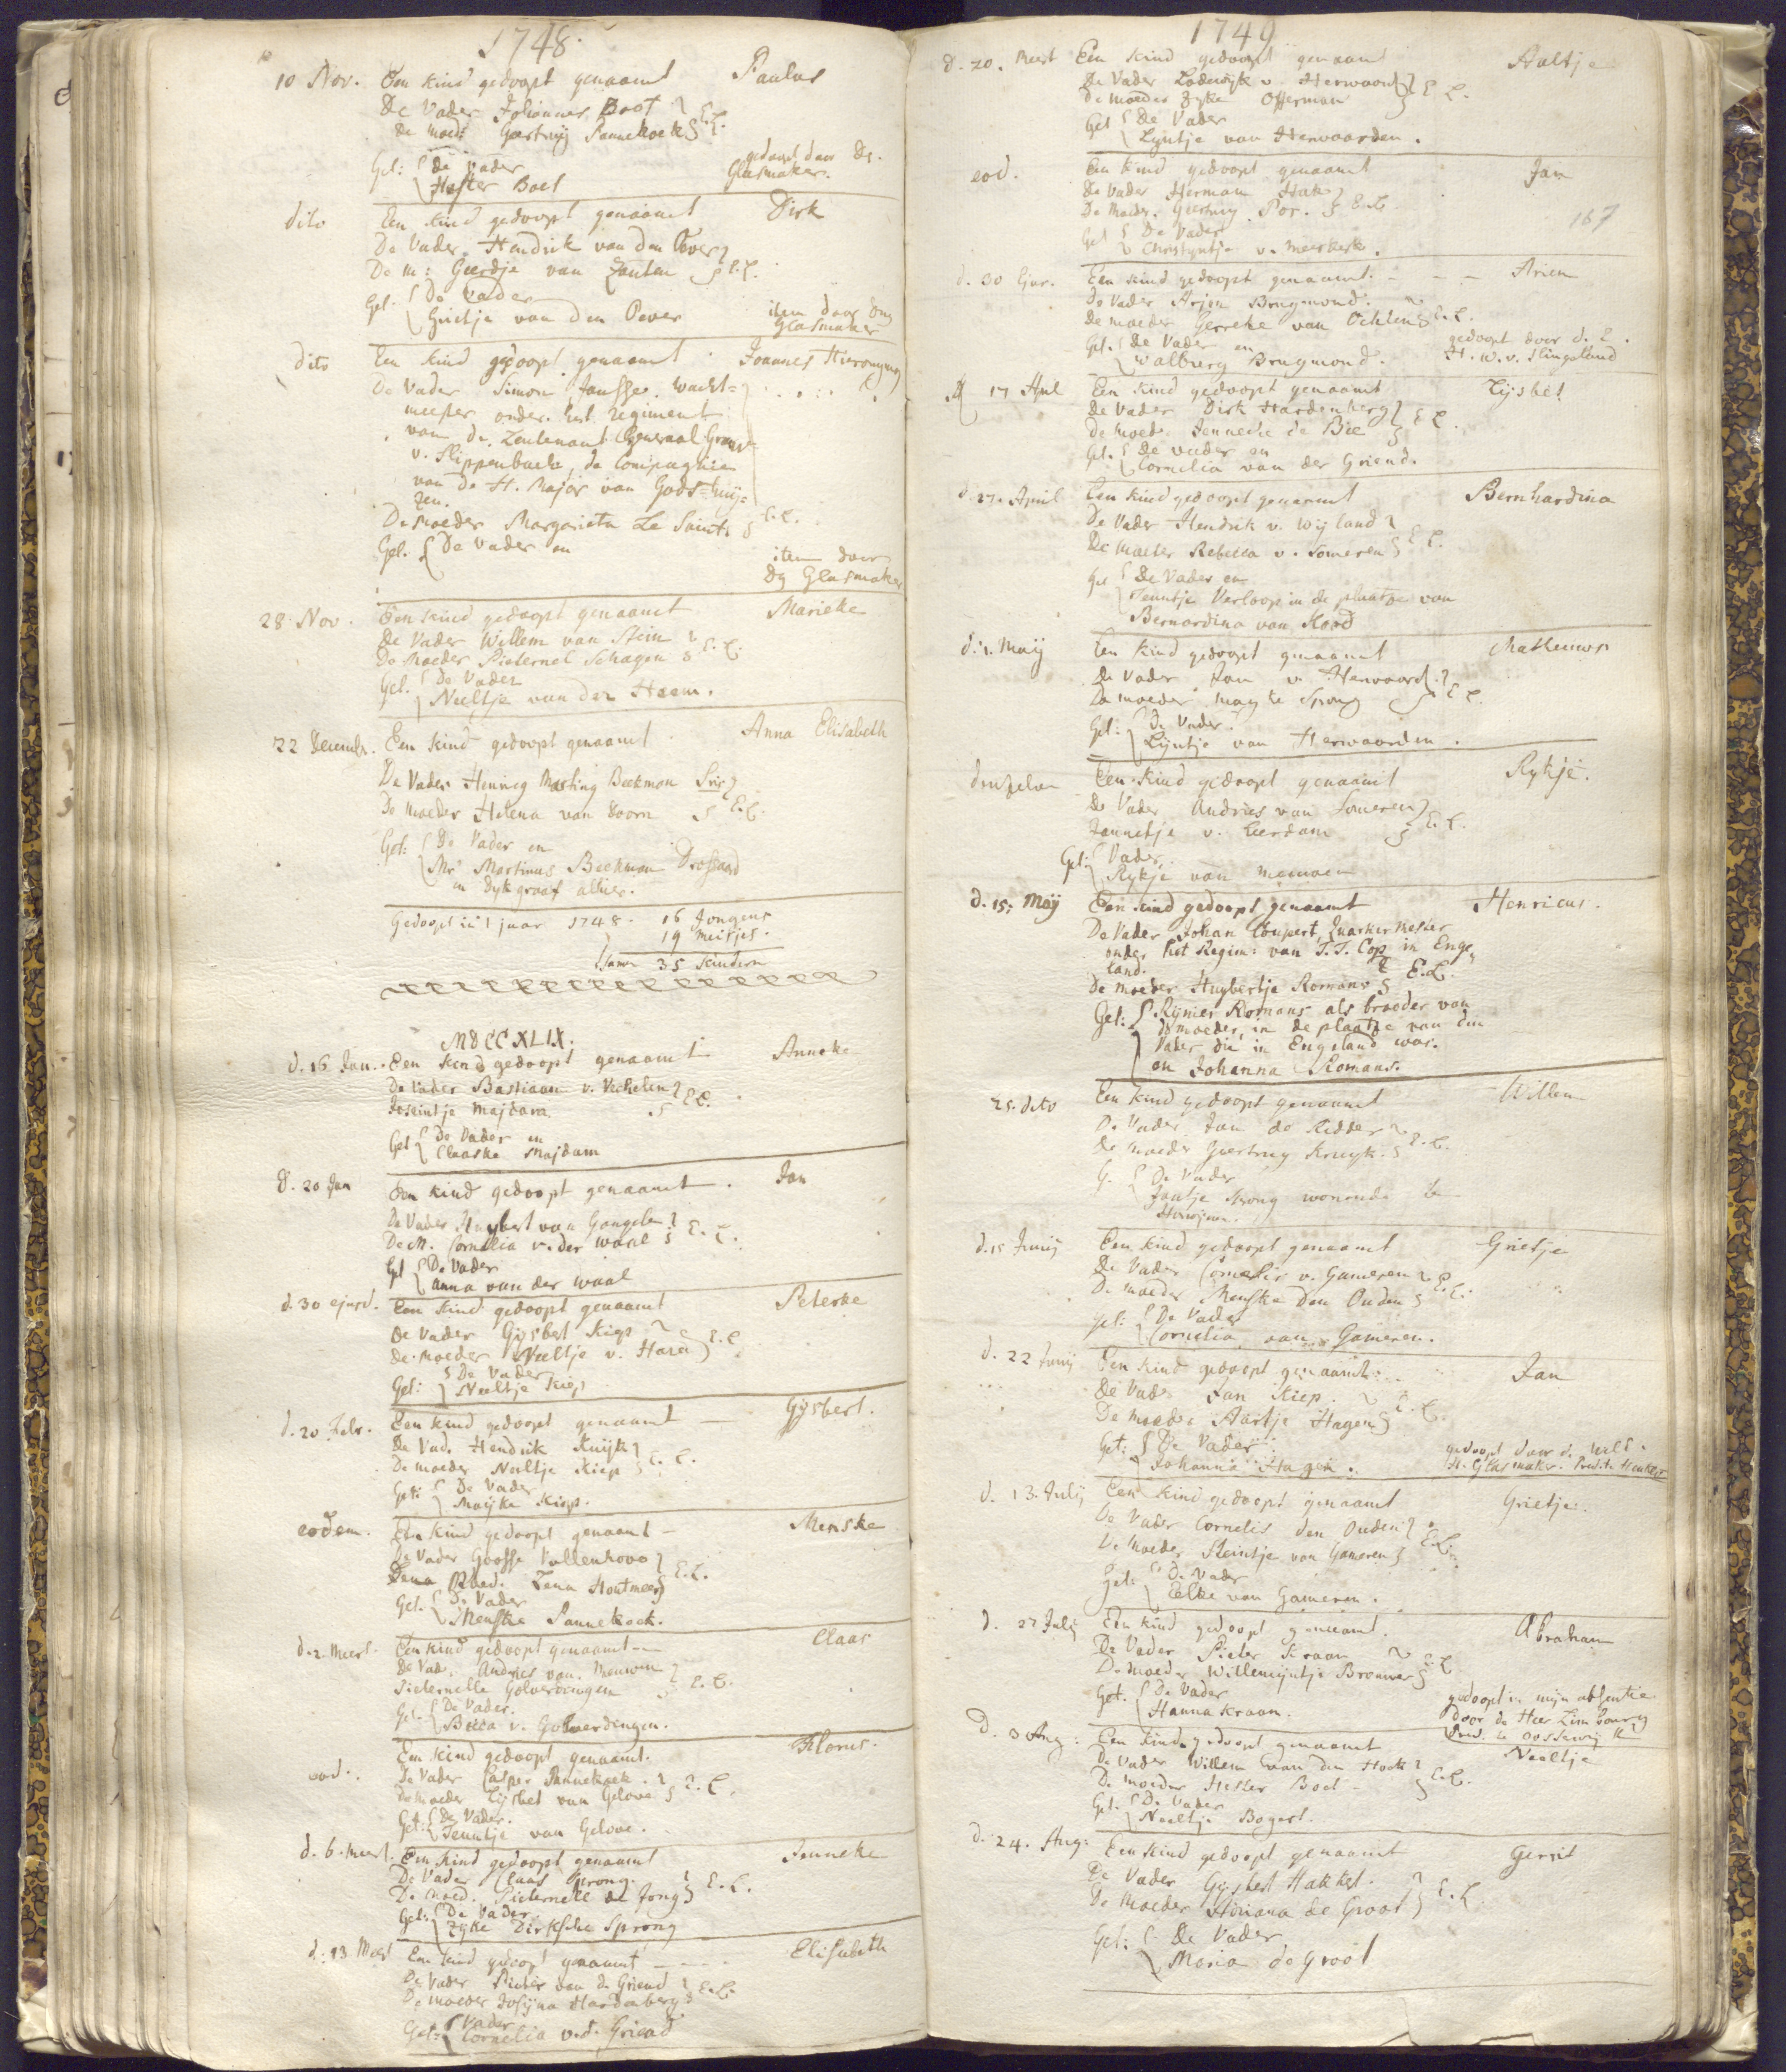 1748.
10 Nov. Een kind gedoopt genaamt Paulus
De Vader Johannes Boot
De Moed: Geertruij Pannekoek E.L.
Get: De Vader gedoopt door Ds.
Hester Boet Glasmaker.
dito Een kind gedoopt genaamt Dirk
De Vader Hendrik van den Oever
De M: Geertje van Zanten E.L.
Get. De Vader
Grietje van den Oever item door Ds
Glasmaker
dito Een kind gedoopt genaamt Joannes Hieronymus
De Vader Simon Jansse. wacht=
meester onder het regiment
van de Leutenant Generaal Graaf
v. Slippenback, de Compagnie
van de H. Major van Gods=huij=
zen.
De Moeder Margarieta Le Saint E.L.
Get. De Vader en item door
Ds Glasmaker
28 Nov. Een kind gedoopt genaamt Marieke
De Vader Willem van Stein
De Moeder Pieternel Schagen E.L.
Get. De Vader
Neeltje van der Haem.
22 Decemb. Een kind gedoopt genaamt Anna Elisabeth
De Vader Henrieg Marting Beekman
De Moeder Helena van Doorn E.L.
Get: De Vader en
Mr Martinus Beekman Drossaard
en Dykgraaf alhier.
Gedoopt in 't jaar 1748. 16 Jongens
19 Meisjes.
samen 35 kinderen
MDCCXLIX.
d. 16 Jan. Een kind gedoopt genaamt Anneke
De Vader Bastiaan v. Vechelen
Joseintje Majdam E.L.
Get De Vader en
Claaske Majdam
d. 20 Jan Een kind gedoopt genaamt. Jan
De Vader Huybert van Gangelen
De M. Cornelia v. der Waal E.L.
Get De Vader
Anna van der Waal
d. 30 ejusd. Een kind gedoopt genaamt Peterke
De Vader Gysbert Kiep
De Moeder Neeltje v. Haren E.L.
Get: De Vader
Neeltje Kiep
d. 20 Febr. Een kind gedoopt genaamt Gysbert.
De Vad. Hendrik Kuijk
De moeder Neeltje Kiep E.L.
Get: De Vader
Maijke Kiep.
eodem. Een kind gedoopt genaamt Menske
De Vader Goosse Vollenhove
Moed. Lena Houtmeers E.L.
Get. De Vader
Menske Pannekoek.
d. 2. Meert. Een kind gedoopt genaamt Claas
De Vad. Andries van Meeuwen
Pieternelle Golverdingen E.L.
Get. De Vader.
Becca v. Golverdingen.
eod. Een kind gedoopt genaamt. Florus.
De Vader Casper Pannekoek.
De Moeder Lijsbet van Gelove E.L.
Get: De Vader.
Teuntje van Gelove.
d. 6. Meert. Een kind gedoopt genaamt Jenneke
De Vader Claas Sprong.
De Moed. Pieternelle de Jong E.L.
Get: De Vader.
Zyke Dirksche Sprong
d. 13 Meert Een kind gedoopt genaamt Elisabeth
De Vader Pieter van de Griend
De Moeder Josyna Hardenberg E.L.
Get: Vader
Cornelia v.d. Griend
1749
d. 20. Meert Een kind gedoopt genaamt Aaltje
De Vader Lodewijk v. Herwaard
De Moeder Zyke Offerman E.L.
Get De Vader
Lijntje van Herwaarden.
eod. Een kind gedoopt genaamt Jan
De Vader Herman Hak
De Moeder. Geertruy Por. E.L. 167
Get De Vader
Christyntje v. Meerkerk.
d. 30 Ejus. Een kind gedoopt genaamt. Arien
De Vader Arjen Brugmond.
De moeder Gerreke van Ochten E.L.
Get. De Vader en gedoopt door d. E.
Walburg Brugmond. H. W. v. Slingeland
17 Apil Een kind gedoopt genaamt Lijsbet
De Vader Dirk Hardenberg
De Moed. Jenneke de Bie E.L.
Get. De Vader en
Cornelia van der Griend.
d. 27. April Een kind gedoopt genaamt Bernhardina
De Vader Hendrik v. Wijland
De Moeder Rebecca v. Someren E.L.
Get De Vader en
Teuntje Verloop in de plaatse van
Bernardina van Hoord
d. 1. Maij Een kind gedoopt genaamt Matheuws
De Vader Jan v. Herwaard.
De moeder mayke Sprong E.L.
Get: De Vader.
Lijntje van Herwaarden.
Een kind gedoopt genaamt Rykje.
De Vader Andries van Someren
Jannetje v. Leerdam E.L.
Get: Vader.
Rykje van Meeuwen
d. 15. Maij Een kind gedoopt genaamt Henricus.
De Vader Johan Coupert, Quartiermester
onder het Regim: van T.T. Cop in Enge
land. E.L.
De moeder Huybertje Romans
Get: Rijnier Romans als broeder van
de moeder, in de plaatse van den
Vader die in Engeland was.
en Johanna Romans.
25. dito Een kind gedoopt genaamt Willem
De Vader. Jan de Ridder
De moeder Geertruy Kruyk. E.L.
G. De Vader
Jantje Sprong wonende te
Herwijnen.
d. 15 Junij Een kind gedoopt genaamt Grietje
De Vader Cornelis v. Gameren
De moeder Menske den Ouden E.L.
Get: De Vader
Cornelia van Gameren.
d. 22 Junij Een kind gedoopt genaamt. Jan
De Vader Jan Kiep.
De Moeder Aartje Hagen E.L.
Get: De Vader gedoopt door de WelE.
Johanna Hagen. H. Glasmaker. Predt. te Heukelum
d. 13. Julij Een kind gedoopt genaamt Grietje.
De Vader Cornelis den Ouden
De Moeder Steintje van Gameren E.L.
Get: De Vader
Eelke van Gameren.
d. 27 Julij Een kind gedoopt genaamt. Abraham
De Vader Pieter Kraam
De moeder Willemijntje Brouwer E.L.
Get. De Vader gedoopt in mijn absentie
Hanna Kraam. door de Heer Limbourg
Pred. te Oosterwijk
d. 3 Aug: Een kind gedoopt genaamt Neeltje
De Vader Willem van den Hoek
De moeder Hester Boet E.L.
Get. De Vader
Neeltje Bogert.
d. 24. Aug: Een kind gedoopt genaamt Gerrit
De Vader Gijsbert Hakket.
De Moeder Adriana de Groot E.L.
Get: De Vader
Maria de Groot